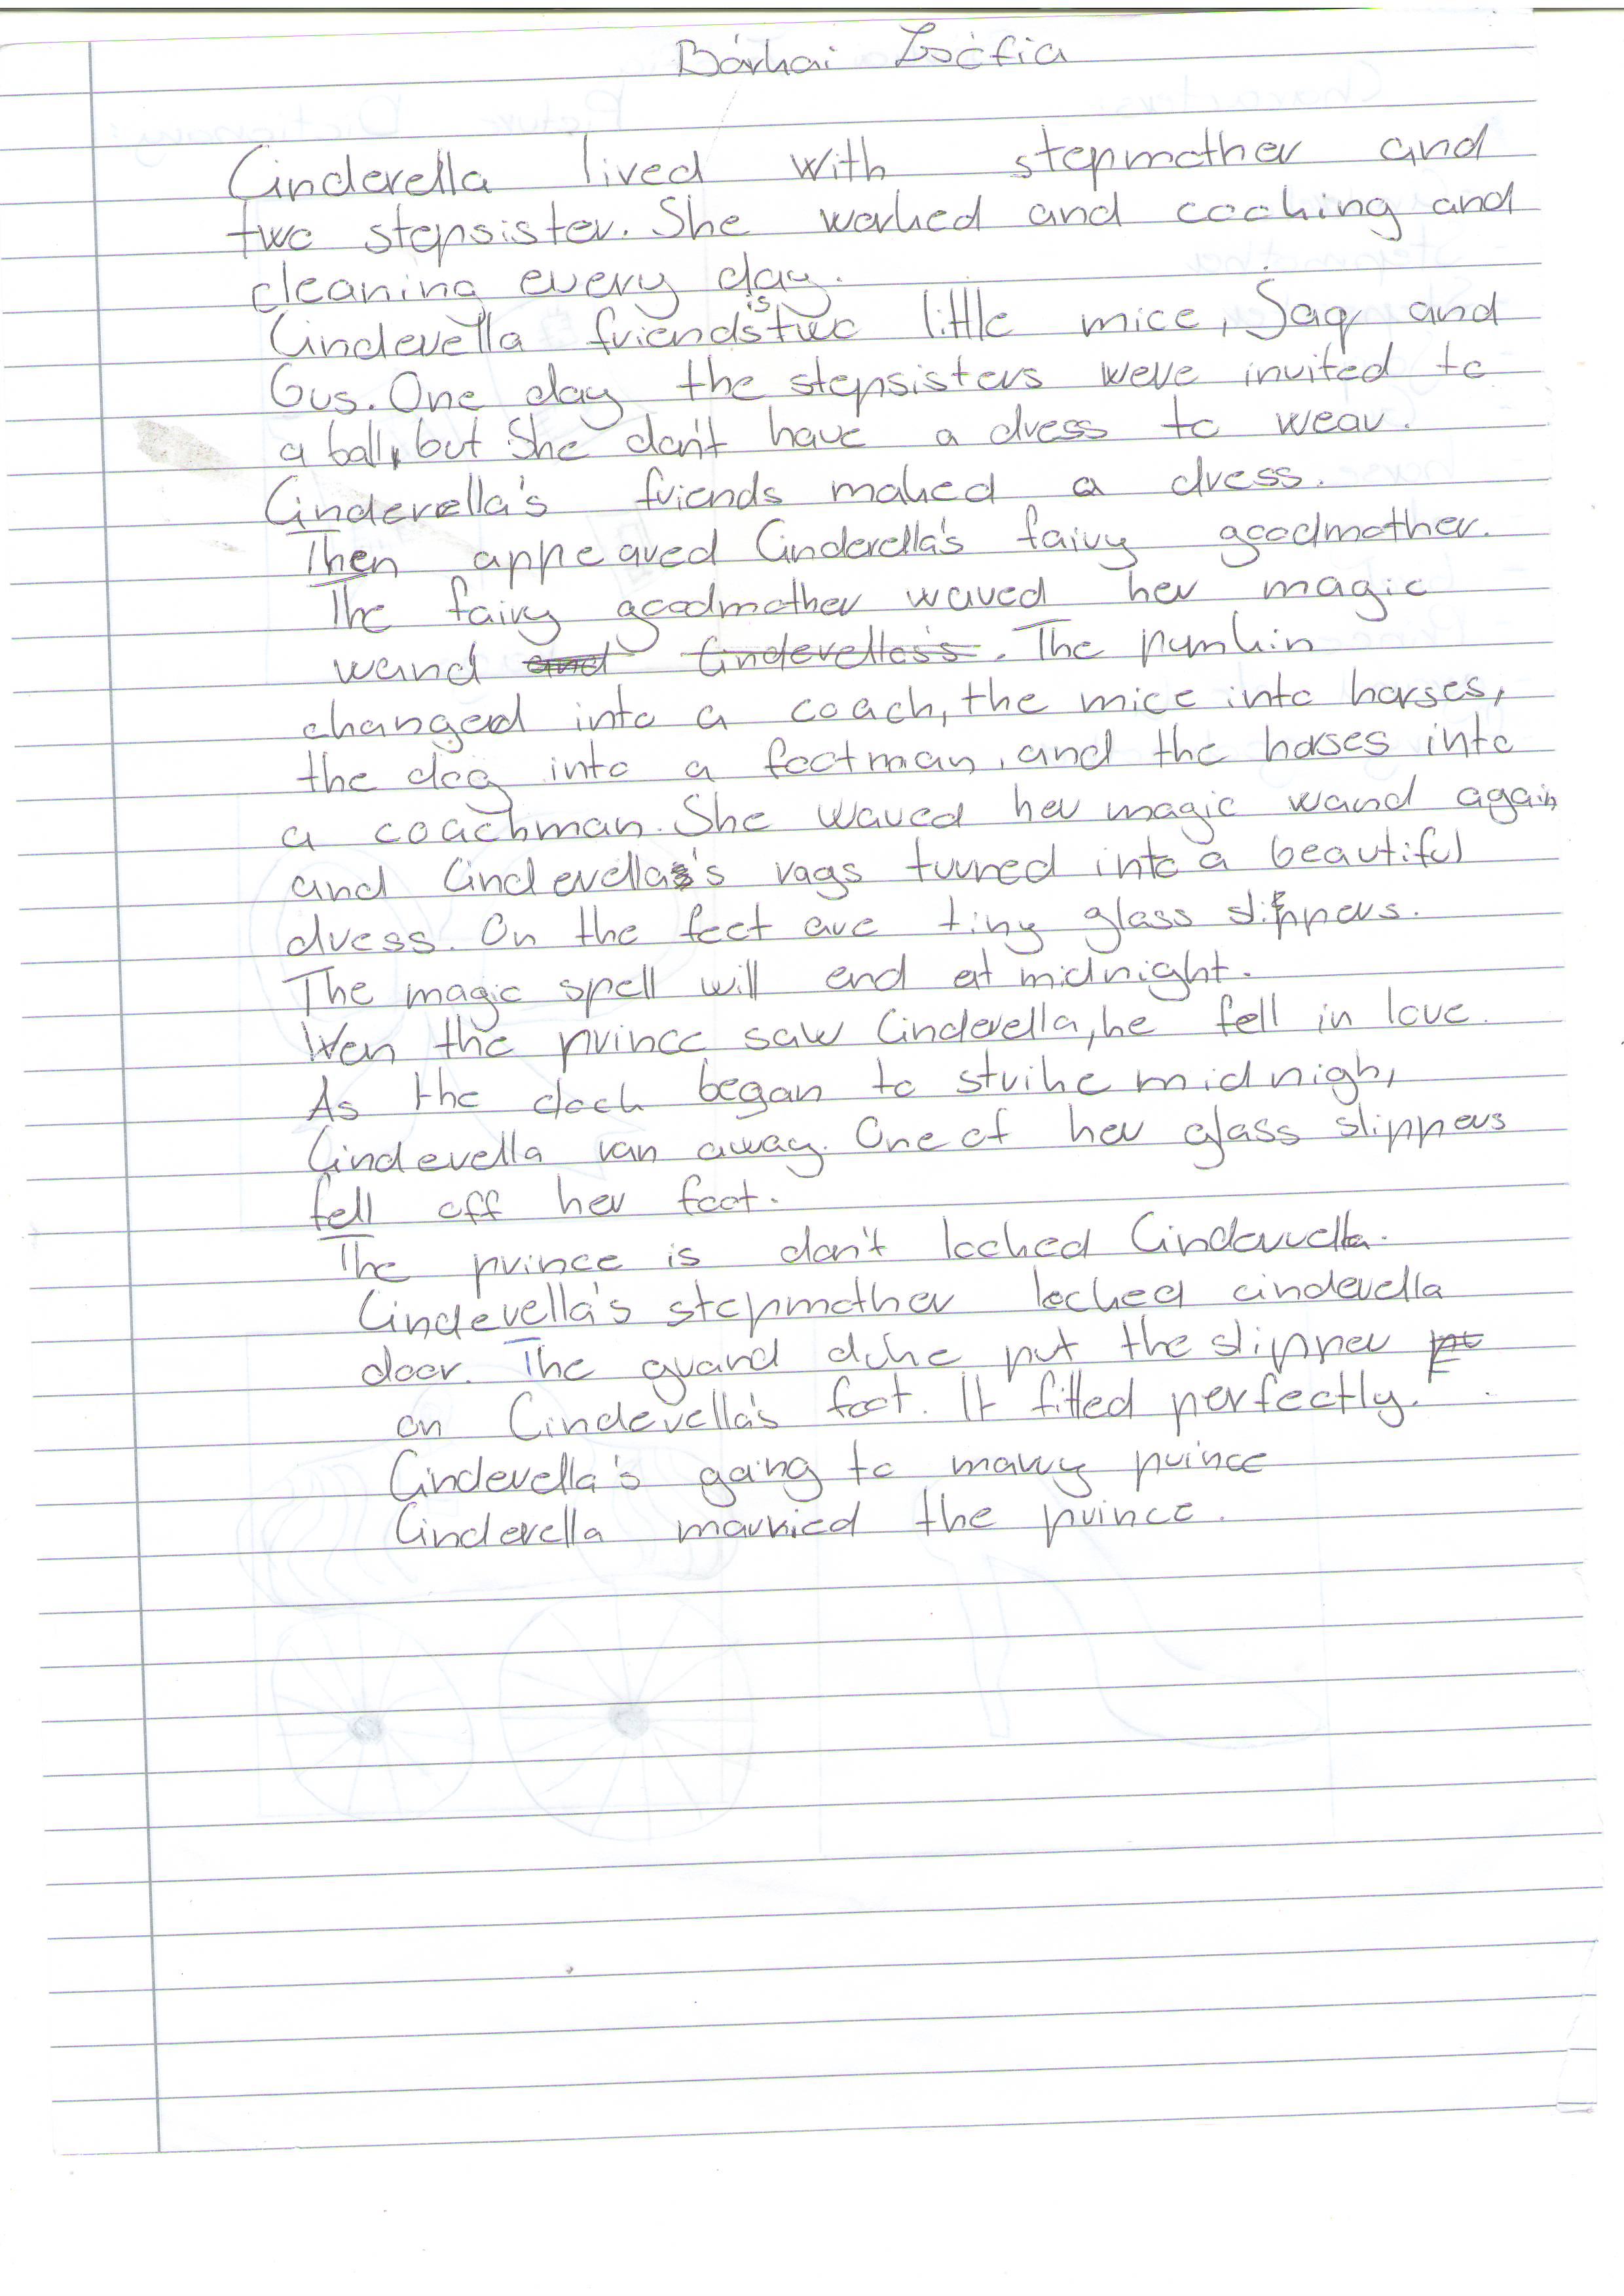 Bárkai Zsófia
Cinderella lived with stepmother and
two stepsister. She worked and cooking and
cleaning every day.
Cinderella friends is two little mice, Jaq and
Gus. One day the stepsisters were invited to
a ball, but She don't have a dress to wear.
Cinderella's friends maked a dress.
Then appeared Cinderella's fairy goodmother.
The fairy goodmother waved her magic
wand and Cinderella's. The pumkin
changed into a coach, the mice into horses,
the dog into a footman, and the horses into
a coachman. She waved her magic wand again,
and Cinderella's rags turned into a beautiful
dress. On the feet are tiny glass slippers.
The magic spell will end at midnight.
Wen the prince saw Cinderella, he fell in love.
As the clock began to strike midnigh,
Cinderella ran away. One of her glass slippers
fell off her foot.
The prince is don't looked Cinderrella.
Cinderella's stepmother locked cinderella
door. The guard duke put the slipper
on Cinderella's foot. It fitted perfectly.
Cinderella's going to marry prince
Cinderella married the prince.